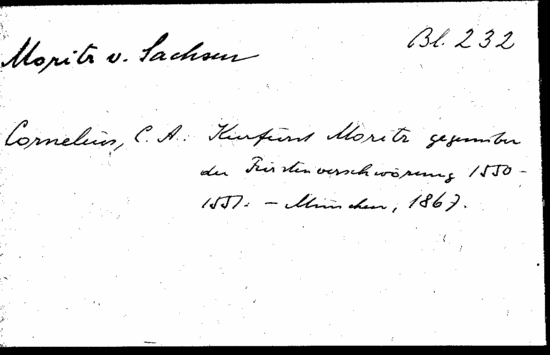 Moritz v. Sachsen
Bl. 232
Cornelius, C. A.: Kurfürst Moritz gegenüber
der Fürstenverschwörung 1550-
1551. – München, 1867.